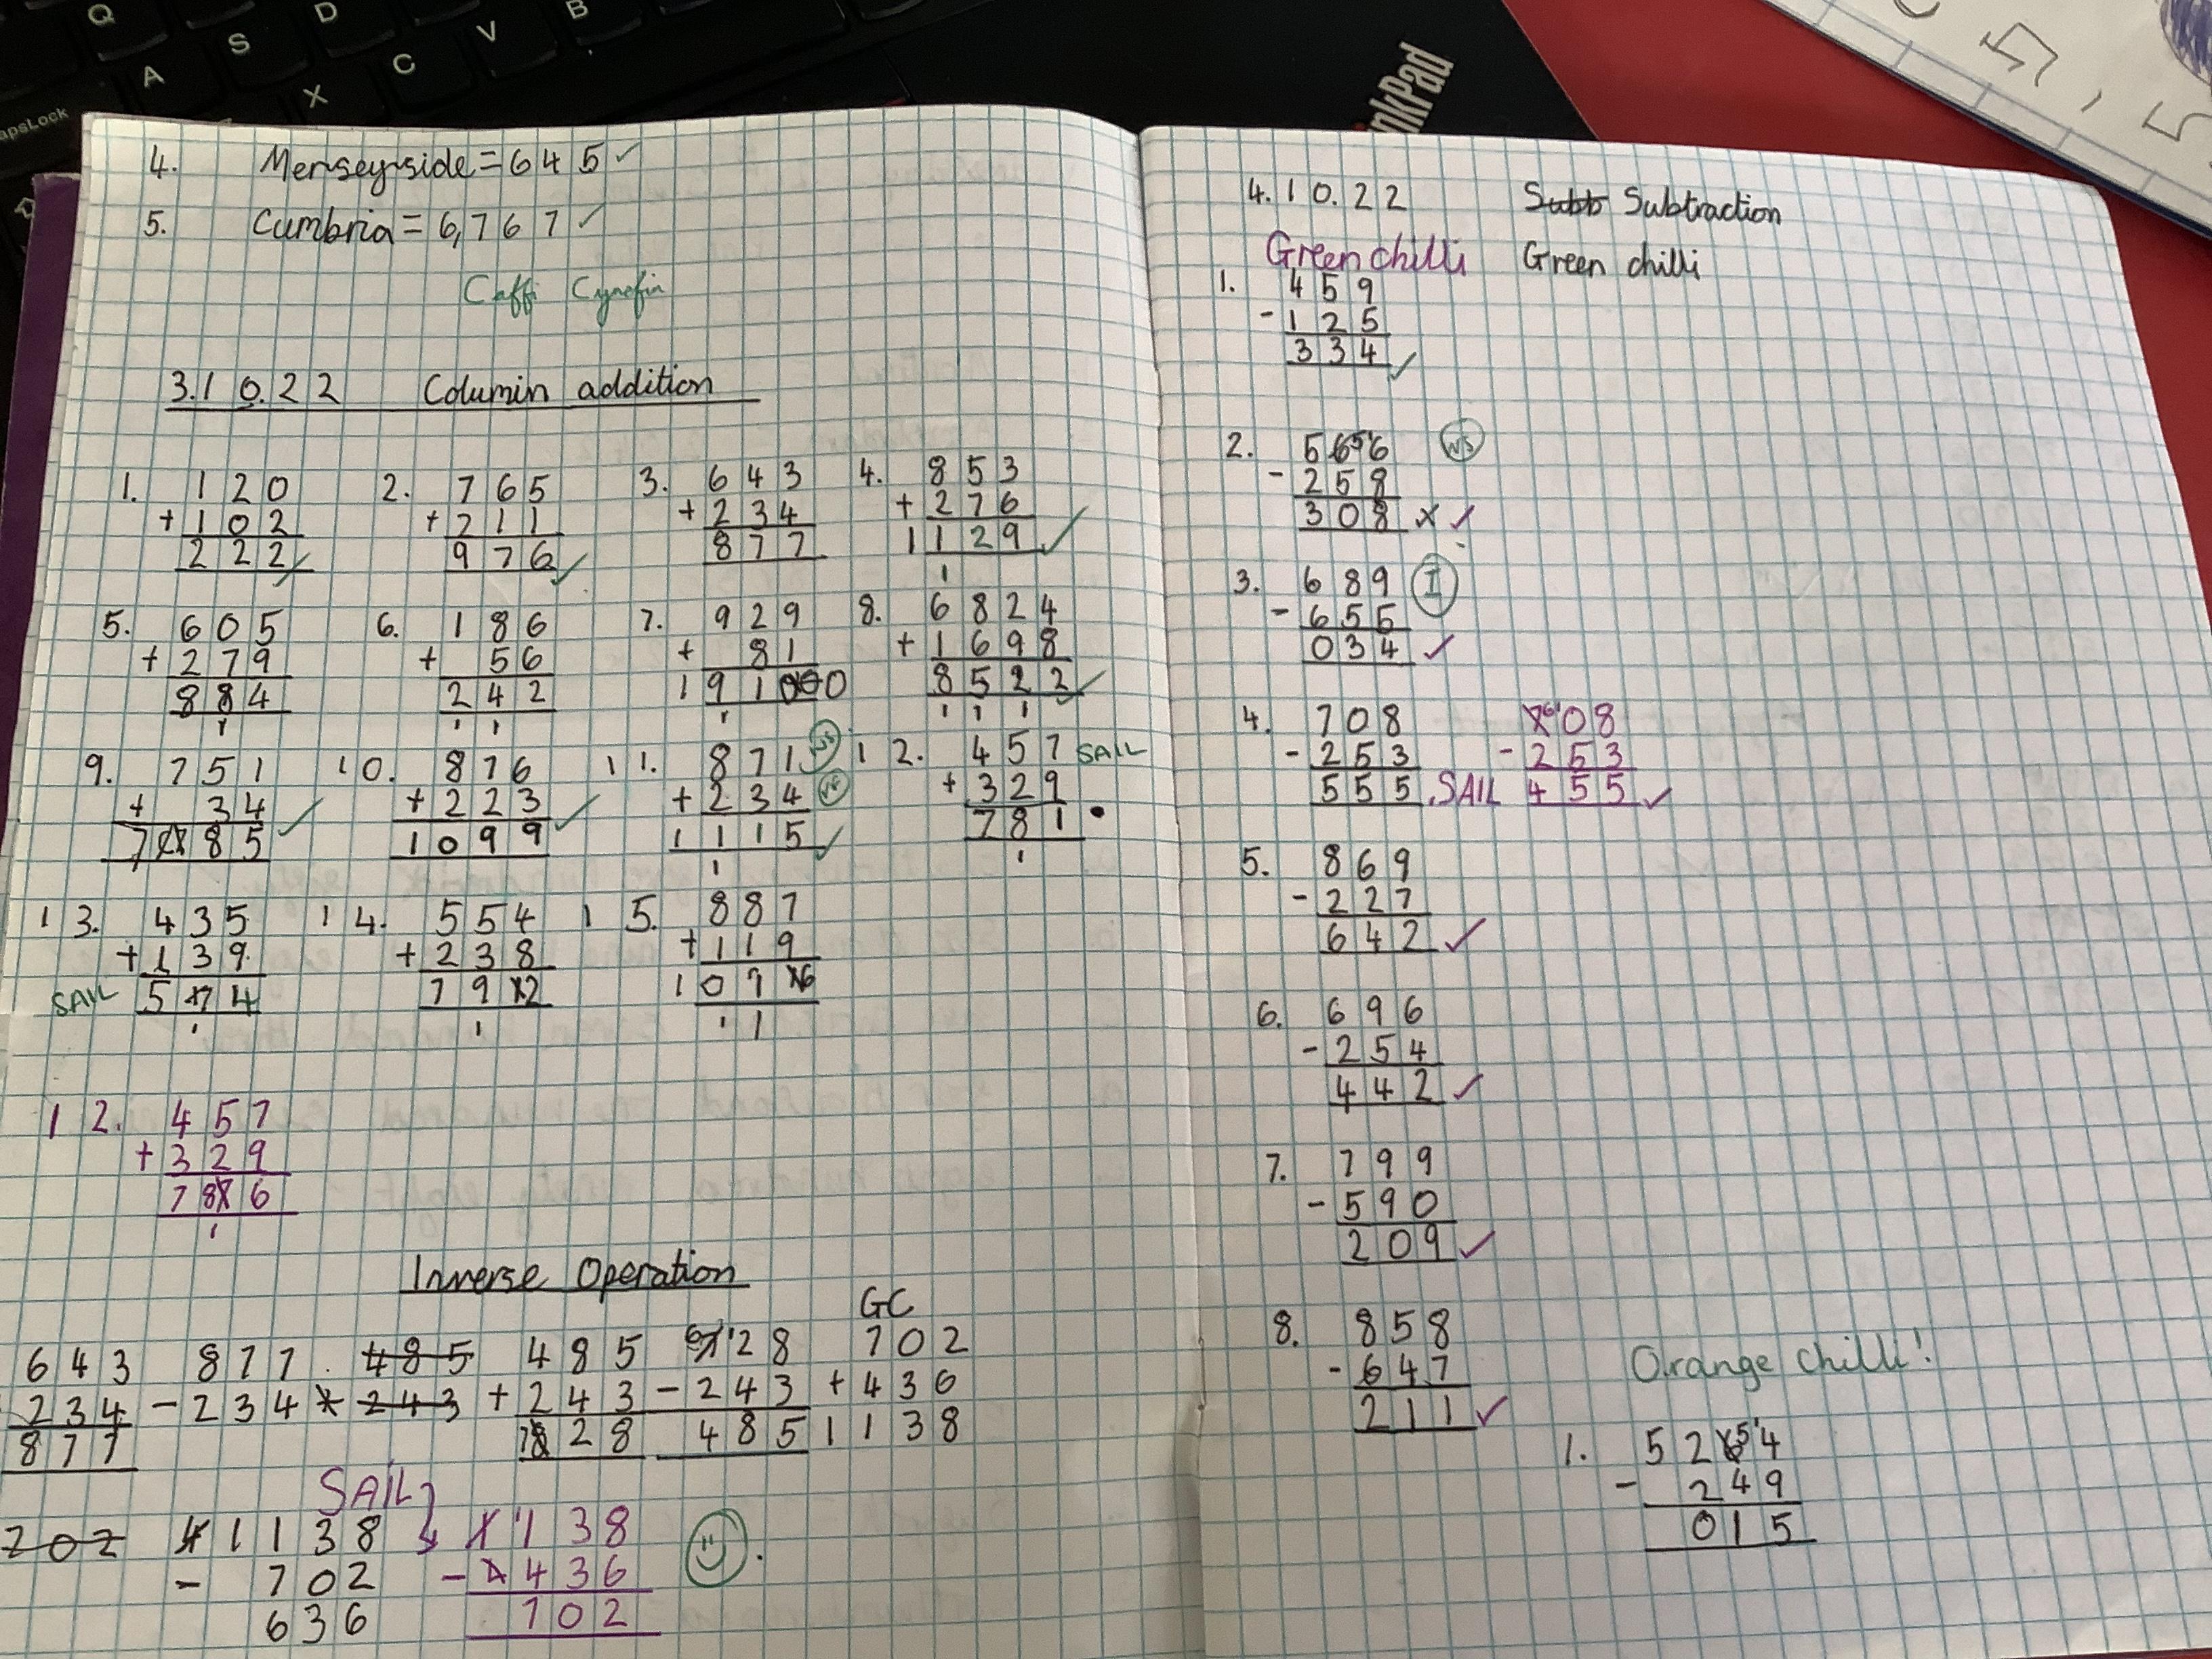 Q
D
B
A
S
X
C
V
apsLock
inkPad
5, 5
4. Merseyside = 645 ✓
5. Cumbria = 6,767 ✓
Caffi Cynefin
3.10.22 Columin addition
1. 120 2. 765 3. 643 4. 853
+102 +211 +234 +276
222 ✓ 976 ✓ 877 1129 ✓
1
5. 605 6. 186 7. 929 8. 6824
+279 + 56 + 81 +1698
884 242 1910 8522 ✓
1 1 1 1 1 1 1
9. 751 10. 876 11. 871 VS 12. 457 SAIL
+ 34 +223 +234 +329
785 ✓ 1099 ✓ 1115 ✓ 781 •
1 1
13. 435 14. 554 15. 887
+139 +238 +119
SAIL 574 792 1076
1 1 1 1
12. 457
+329
786
1
Inverse Operation
GC
643 877 485 485 728 702
234 -234 243 +243 -243 +436
877 728 485 1138
SAIL
202 1138 1138
- 702 - 436
636 702
4.10.22 Subb Subtraction
Green chilli Green chilli
1. 459
-125
334 ✓
2. 566 VS
-258
308 x ✓
3. 689 I
-655
034 ✓
4. 708 708
-253 -253
555. SAIL 455 ✓
5. 869
-227
642 ✓
6. 696
-254
442 ✓
7. 799
-590
209 ✓
8. 858
-647
211 ✓
Orange chilli!
1. 5264
- 249
015